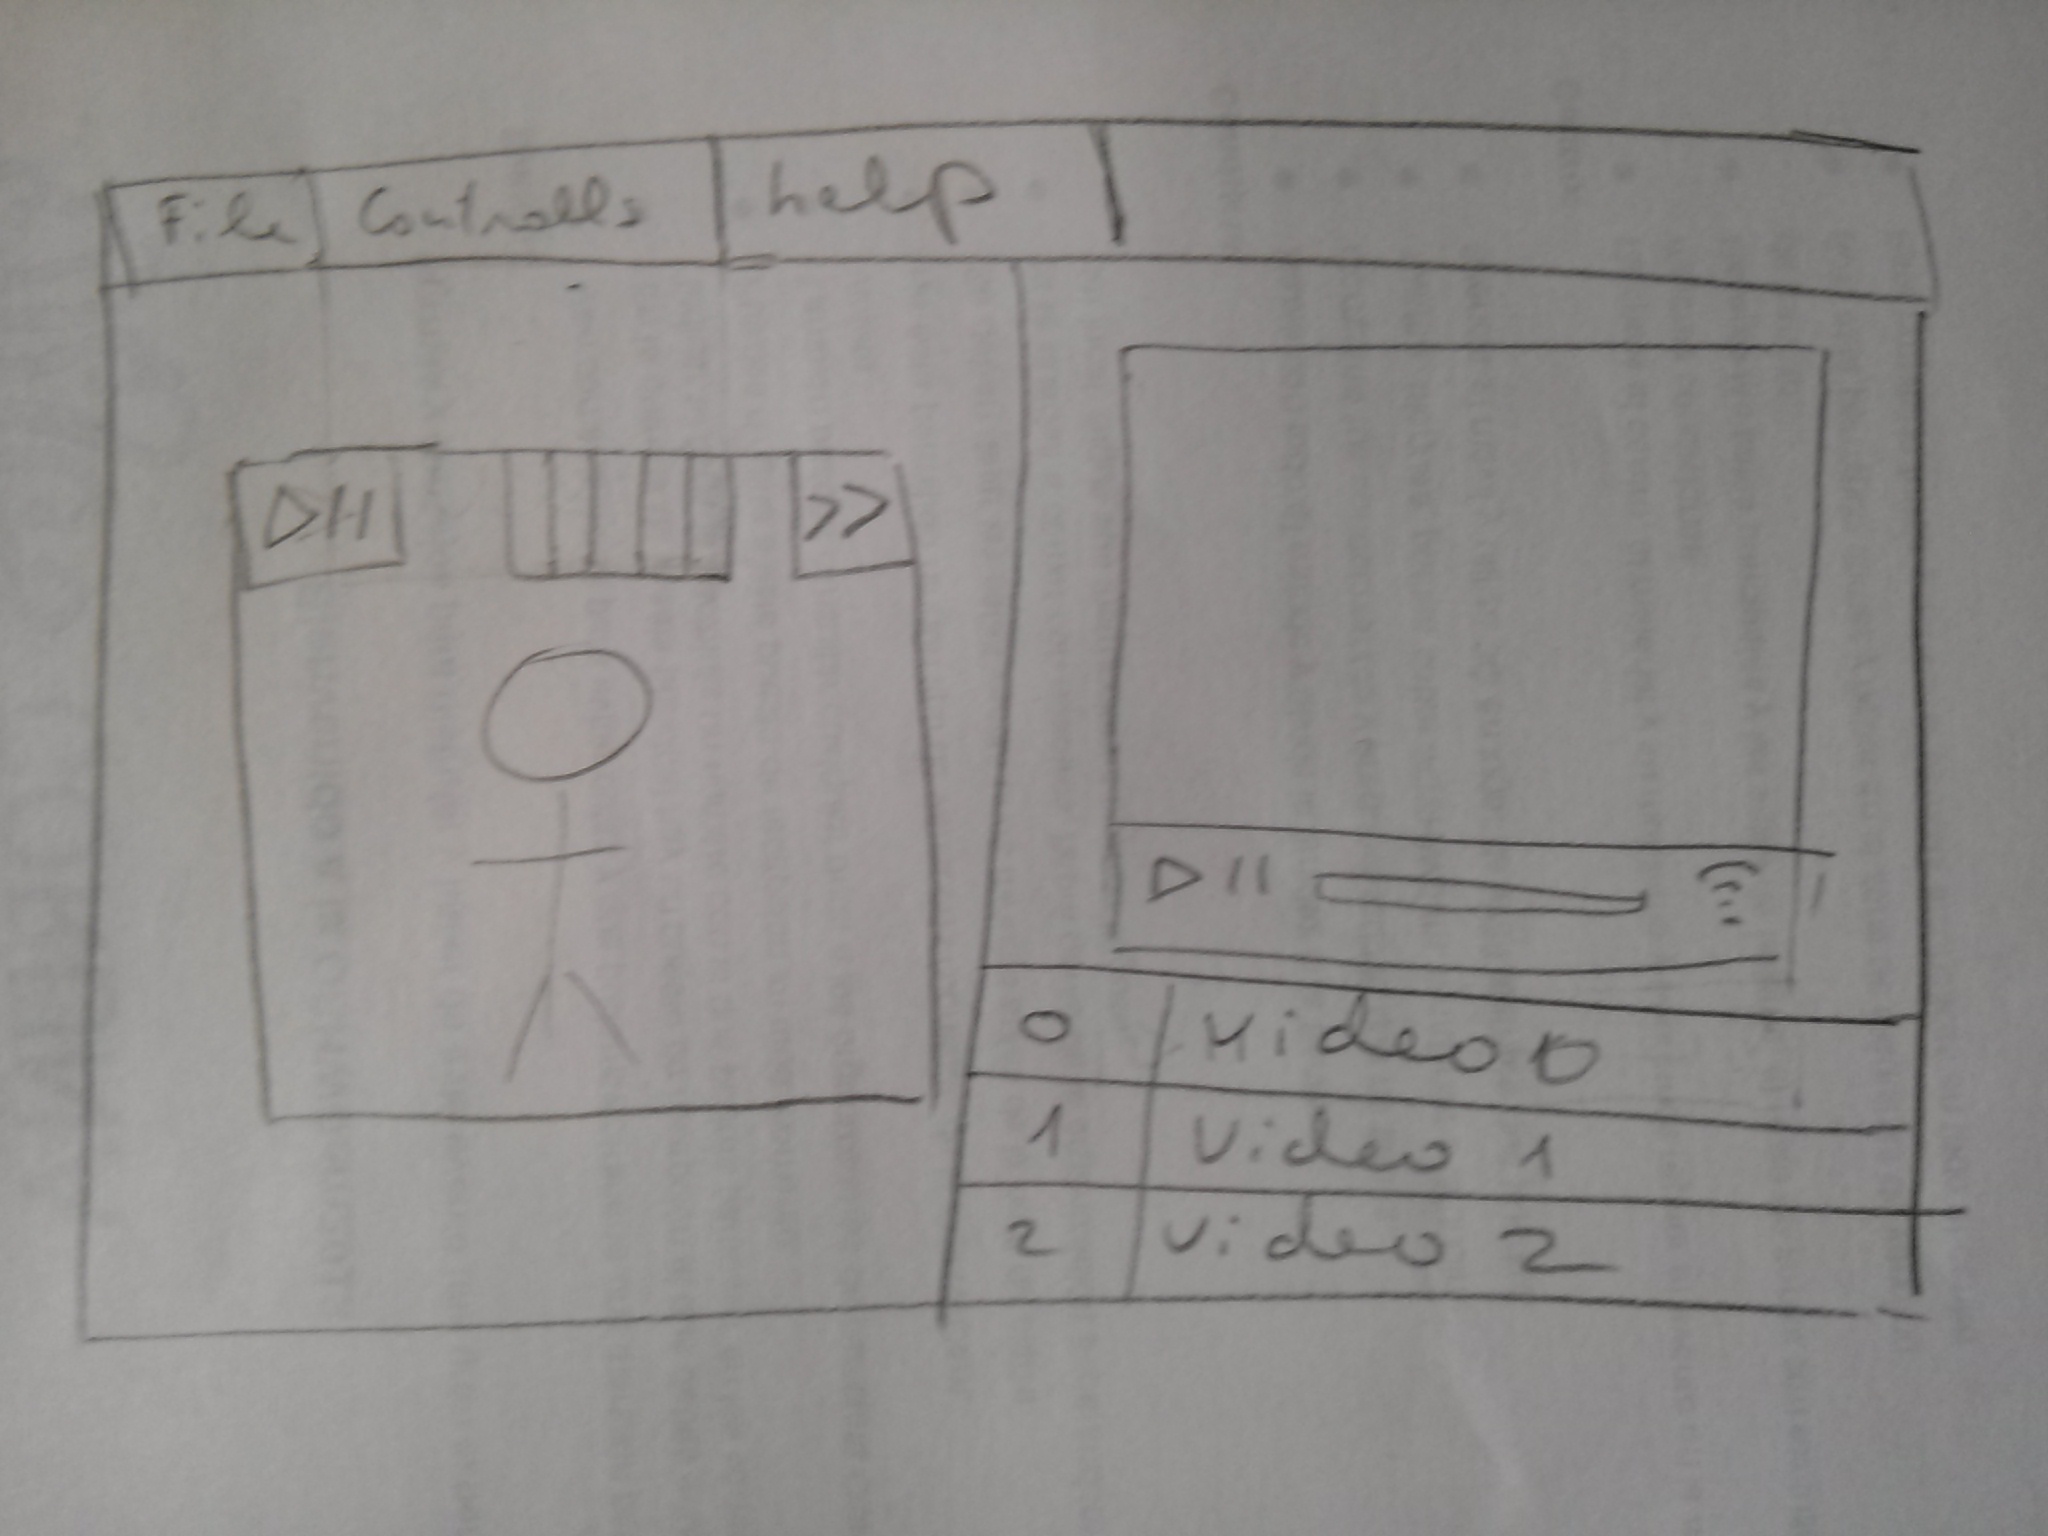 File Controlls help
0 Video 0
1 Video 1
2 Video 2